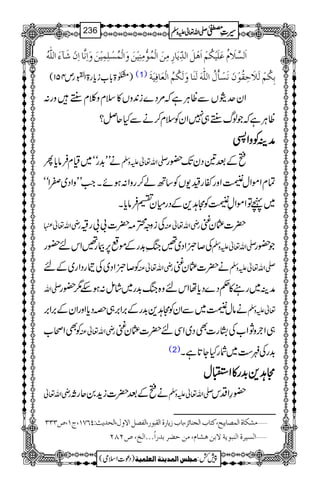 سیرتِ مصطفیٰ صلی اللہ تعالیٰ علیہ وسلم 236
اَلسَّلَامُ عَلَيْكُمْ اَهْلَ الدِّيَارِ مِنَ الْمُؤْمِنِيْنَ وَالْمُسْلِمِيْنَ وَاِنَّا اِنْ شَآءَ اللّٰهُ
بِكُمْ لَلَاحِقُوْنَ نَسْأَلُ اللّٰهَ لَنَا وَلَكُمُ الْعَافِيَةَ (1) (مشکوٰۃ باب زیارۃ القبور ص۱۵۴)
ان حدیثوں سے ظاہر ہے کہ مردے زندوں کا سلام و کلام سنتے ہیں ورنہ
ظاہر ہے کہ جو لوگ سنتے ہی نہیں ان کو سلام کرنے سے کیا حاصل؟
مدینہ کو واپسی
فتح کے بعد تین دن تک حضور صلی اللہ تعالیٰ علیہ وسلم نے ’’بدر‘‘ میں قیام فرمایا پھر
تمام اموال غنیمت اور کفار قیدیوں کو ساتھ لے کر روانہ ہوئے۔ جب ’’وادی صفرا‘‘
میں پہنچے تو اموالِ غنیمت کو مجاہدین کے درمیان تقسیم فرمایا۔
حضرت عثمانِ غنی رضی اللہ تعالیٰ عنہ کی زوجہ محترمہ حضرت بی بی رقیہ رضی اللہ تعالیٰ عنہا
جو حضور صلی اللہ تعالیٰ علیہ وسلم کی صاحبزادی تھیں جنگِ بدر کے موقع پر بیمار تھیں اس لئے حضور
صلی اللہ تعالیٰ علیہ وسلم نے حضرت عثمانِ غنی رضی اللہ تعالیٰ عنہ کو صاحبزادی کی تیمارداری کے لئے
مدینہ میں رہنے کا حکم دے دیا تھا اس لئے وہ جنگِ بدر میں شامل نہ ہو سکے مگر حضور صلی اللہ
تعالیٰ علیہ وسلم نے مالِ غنیمت میں سے ان کو مجاہدین بدر کے برابر ہی حصہ دیا اور ان کے برابر
ہی اجر و ثواب کی بشارت بھی دی اسی لئے حضرت عثمانِ غنی رضی اللہ تعالیٰ عنہ کو بھی اصحاب
بدر کی فہرست میں شمار کیا جاتا ہے۔ (2)
مجاہدینِ بدر کا استقبال
حضور اقدس صلی اللہ تعالیٰ علیہ وسلم نے فتح کے بعد حضرت زید بن حارثہ رضی اللہ تعالیٰ
......مشکاة المصابیح،کتاب الجنائز،باب زیارة القبور،الفصل الاول،الحدیث:۱۷٦٤،ج۱،ص۳۳۳
......السیرة النبویة لابن هشام، من حضر بدراً...الخ، ص۲۸۲
پیش کش: مجلس المدینة العلمیة (دعوتِ اسلامی)